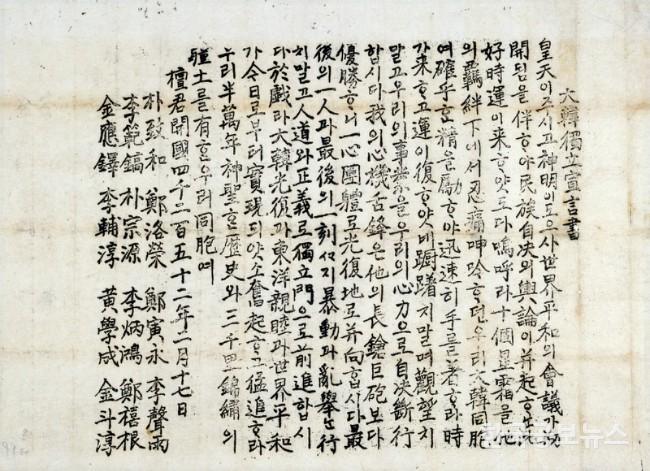 大韓獨立宣言書
皇天이주시고神明이도으사世界平和의會議가
開됨을伴ᄒᆞ야民族自決의輿論이幷起ᄒᆞ
好時運이來ᄒᆞ얏도다嗚呼라十個星霜을他
의羈絆下에서忍痛呻吟ᄒᆞ던우리大韓同胞
여確乎ᄒᆞᆫ精을勵ᄒᆞ야迅速히手를著ᄒᆞ라時
가來ᄒᆞ고運이復ᄒᆞ얏네躕躇치말며觀望치
말고우리의事業을우리의心力으로自決斷行
합시다我의心機舌鋒은他의長鎗巨砲보다
優勝ᄒᆞ니一心團體로光復地로幷向합시다最
後의一人과最後의一刻ᄭᆞ지暴動과亂擧는行
치말고人道와正義로獨立門으로前進합시
다於戲라大韓光復과東洋親睦과世界平和
가今日로부터實現되얏소奮起ᄒᆞ고猛進ᄒᆞ라
우리半萬年神聖ᄒᆞᆫ歷史와三千里錦繡의
疆土를有ᄒᆞᆫ우리同胞여
檀君開國四千二百五十二年二月十七日
朴致和 鄭洛榮 鄭寅永 李聲雨
李範鎬 朴宗源 李炳鴻 鄭禧根
金應鐸 李輔淳 黃學成 金斗淳
뉴스